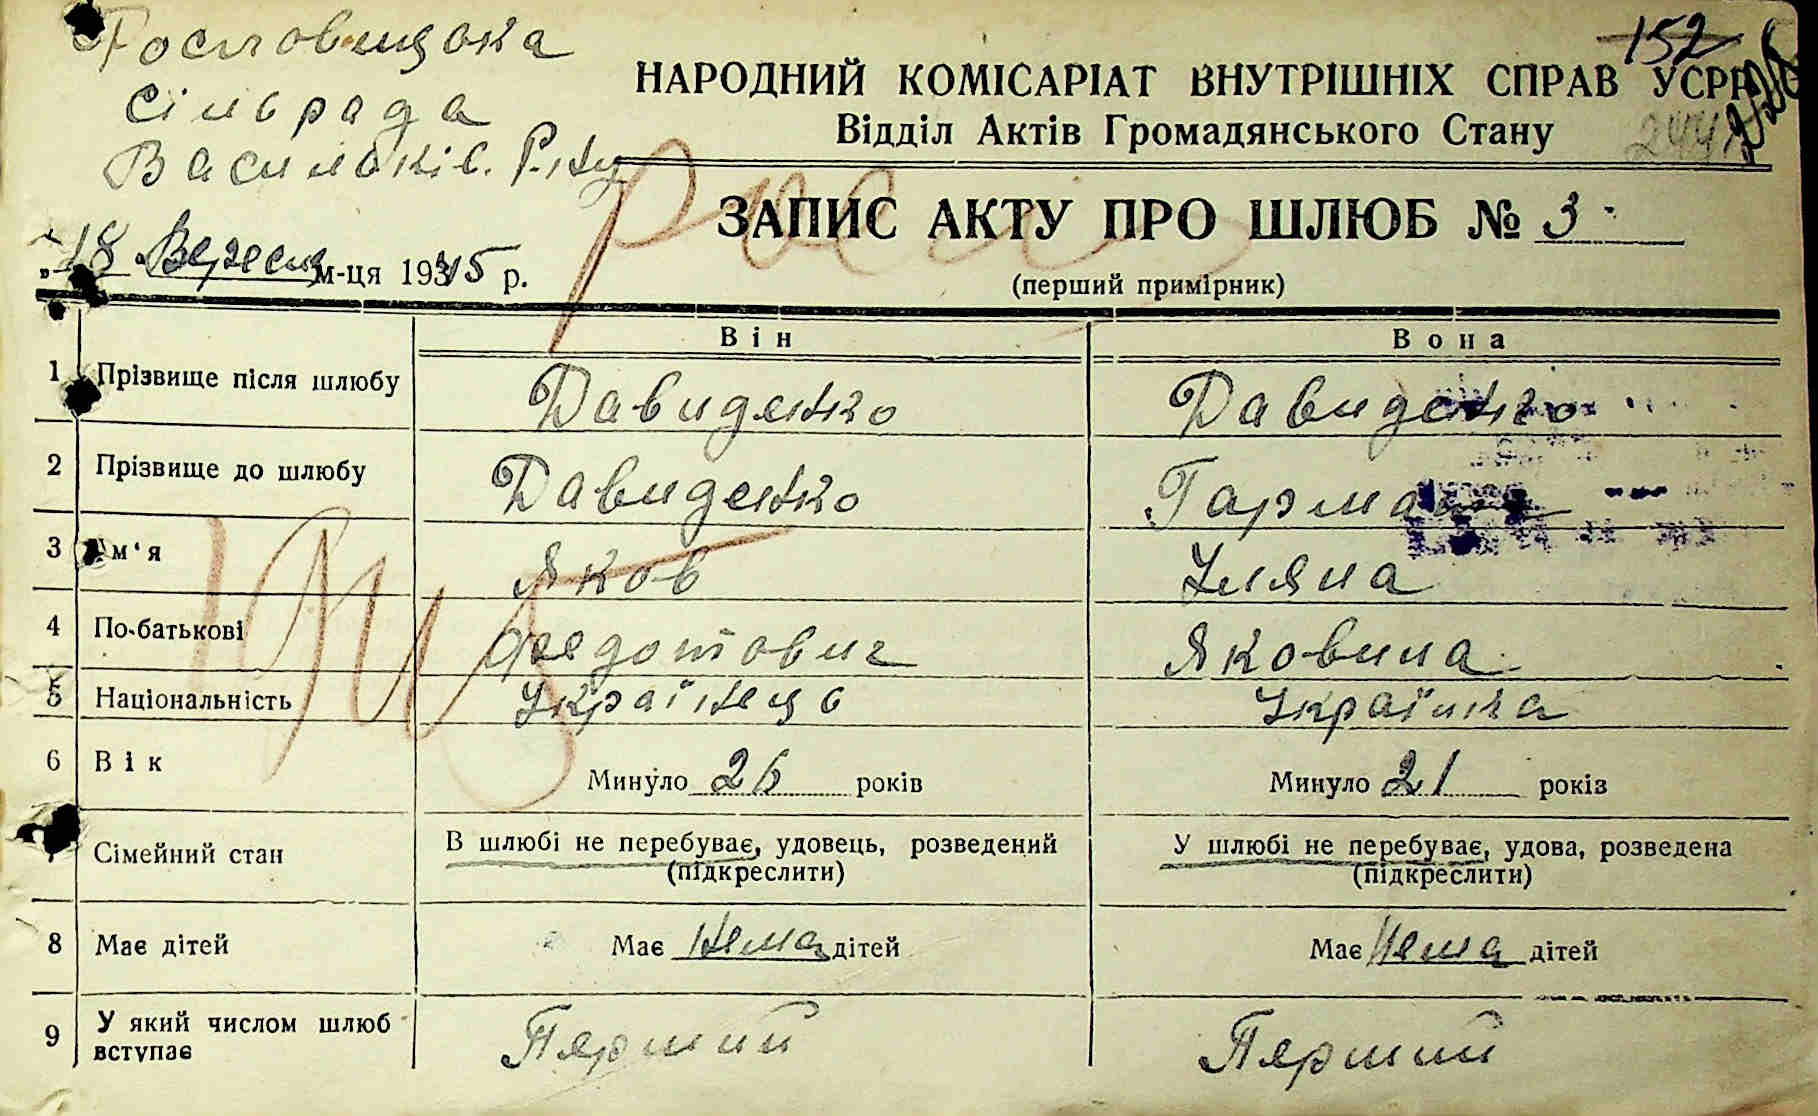 Гостовицока
Сілорада
Василоків. Р.ну
152
НАРОДНИЙ КОМІСАРІАТ ВНУТРІШНІХ СПРАВ УСРР
Відділ Актів Громадянського Стану
244
ЗАПИС АКТУ ПРО ШЛЮБ № 3
„18 “ Вересня м-ця 1945 р.
(перший примірник)
Він
Вона
1 Прізвище після шлюбу Давиденко Давиденко
2 Прізвище до шлюбу Давиденко
3 Ім'я Яков Уляна
4 По-батькові Федотович Яковина
5 Національність Українець Українка
6 Вік Минуло 26 років Минуло 21 років
Сімейний стан В шлюбі не перебуває, удовець, розведений У шлюбі не перебуває, удова, розведена
(підкреслити) (підкреслити)
8 Має дітей Має Нема дітей Має Нема дітей
9 У який числом шлюб вступає Перший Перший